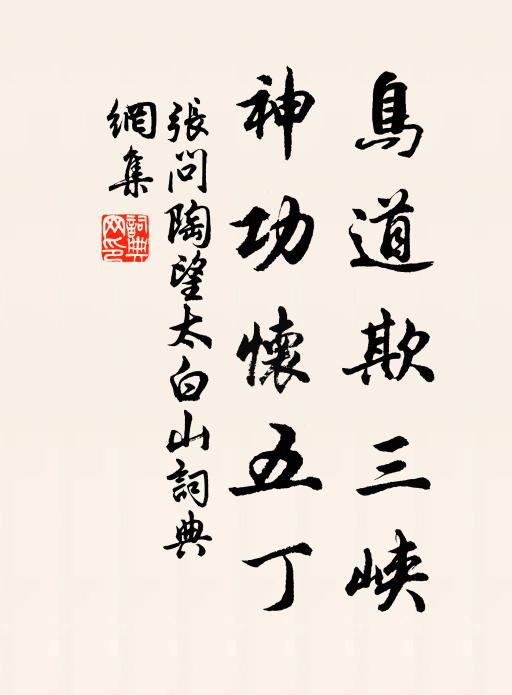 鳥道欺三峽
神功懷五丁
張問陶望太白山詞典
網集
詞典網印